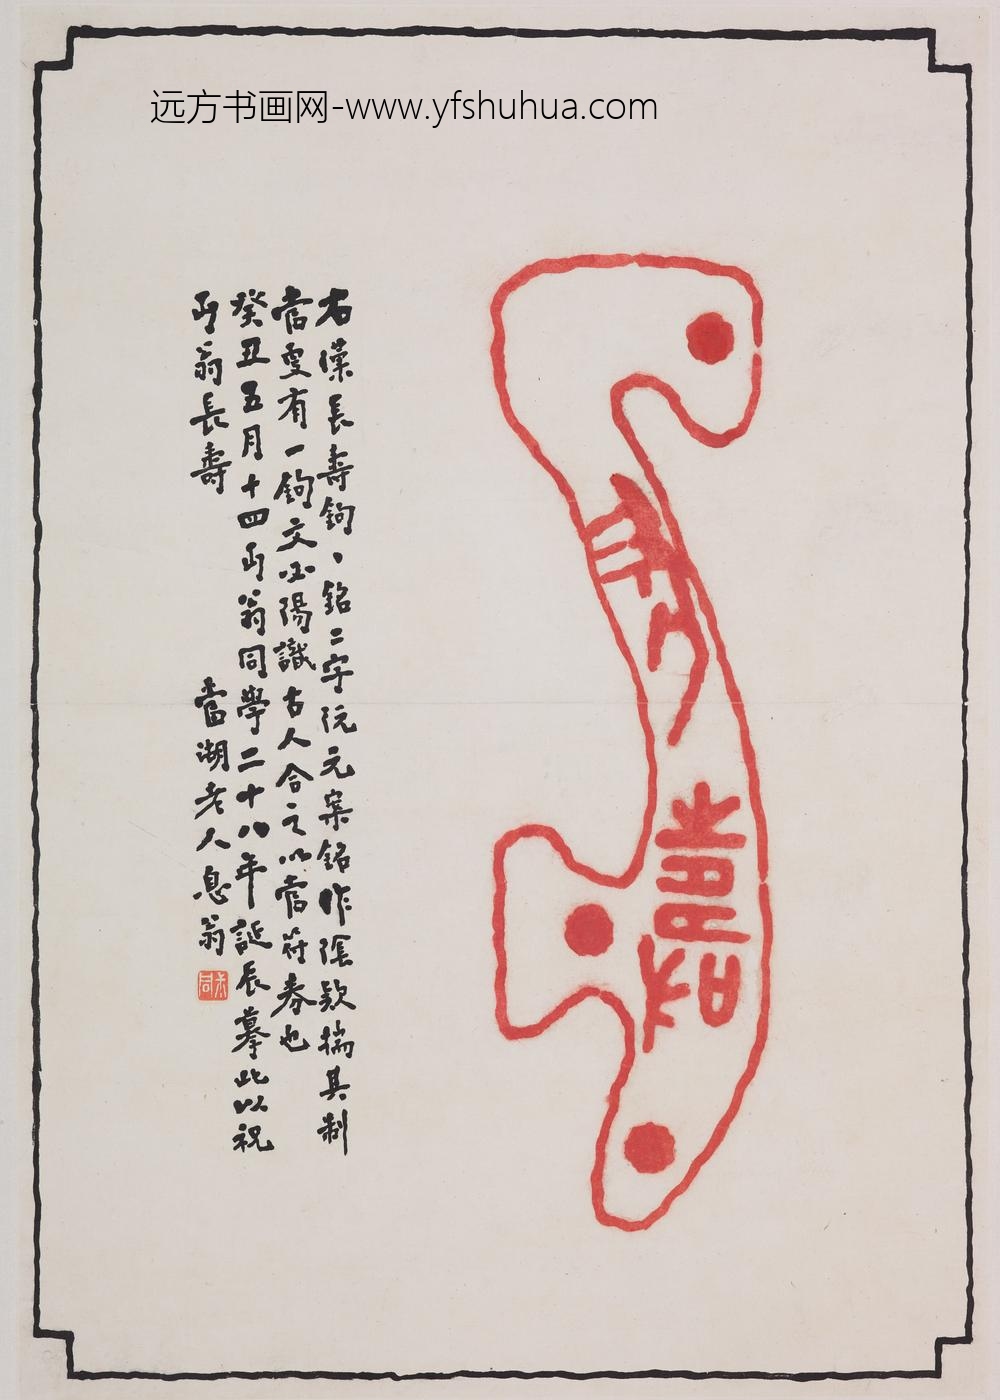 远方书画网-www.yfshuhua.com
長壽
右漢長壽鉤、銘二字阮元案銘作陰款揣其制
當更有一鉤文必陽識古人合之以當符券也
癸丑五月十四丏翁同學二十八年誕辰摹此以祝
丏翁長壽
當湖老人息翁